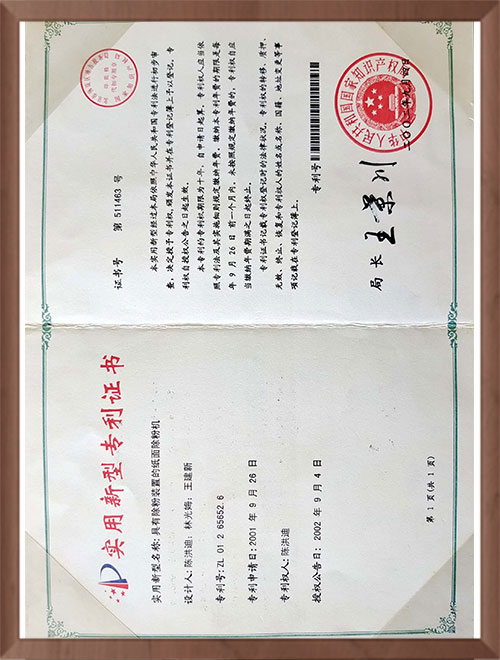 实用新型专利证书
实用新型名称: 具有除粉装置的纸面除粉机
设计人: 陈洪迪; 林光姆; 王建新
专利号: ZL 01 2 65652.6
专利申请日: 2001 年 9 月 26 日
专利权人: 陈洪迪
授权公告日: 2002 年 9 月 4 日
第 1 页(共 1 页)
证书号 第 511463 号
本实用新型经过本局依照中华人民共和国专利法进行初步审
查,决定授予专利权,颁发本证书并在专利登记簿上予以登记。专
利权自授权公告之日起生效。
本专利的专利权期限为十年,自申请日起算。专利权人应当依
照专利法及其实施细则规定缴纳年费。缴纳本专利年费的期限是每
年 9 月 26 日前一个月内。未按照规定缴纳年费的,专利权自应
当缴纳年费期满之日起终止。
专利证书记载专利权登记时的法律状况。专利权的转移、质押、
无效、终止、恢复和专利权人的姓名或名称、国籍、地址变更等事
项记载在专利登记簿上。
专利号
局长 王景川
中华人民共和国国家知识产权局